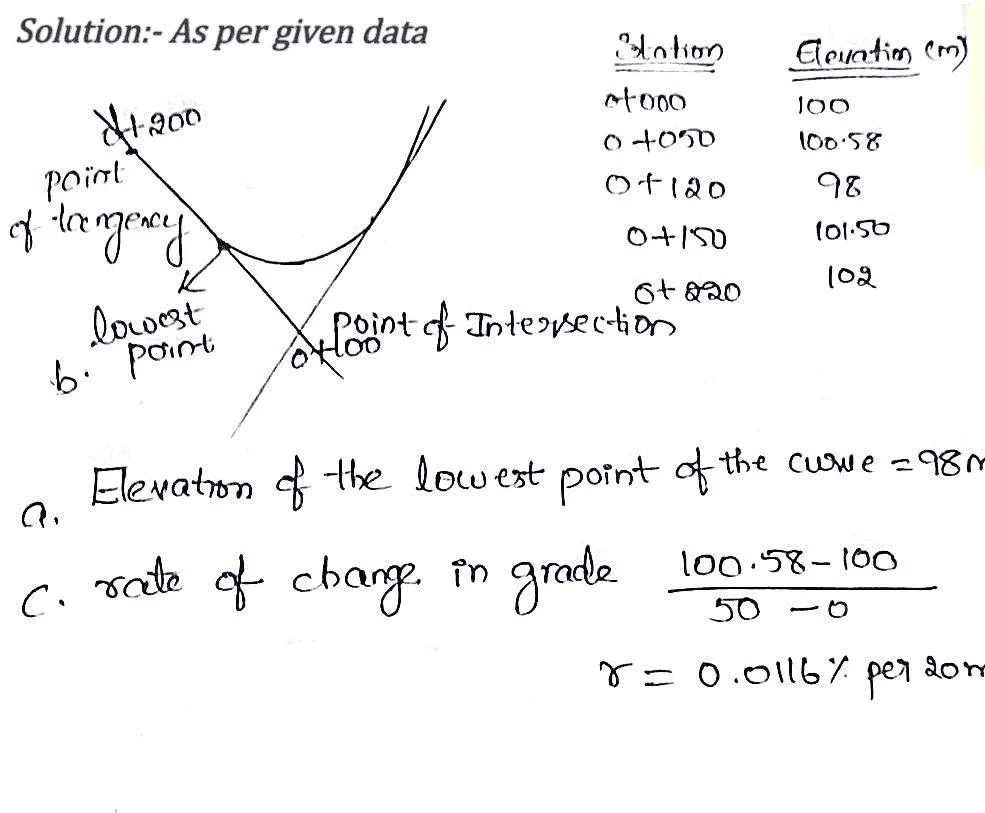 Solution:- As per given data
Station Elevation (m)
0+000 100
0+050 100.58
0+120 98
0+150 101.50
0+220 102
0+200
point
of tangency
lowest
b. point
Point of Intersection
0+100
a. Elevation of the lowest point of the curve = 98m
c. rate of change in grade 100.58-100
50 - 0
r = 0.0116% per 20m